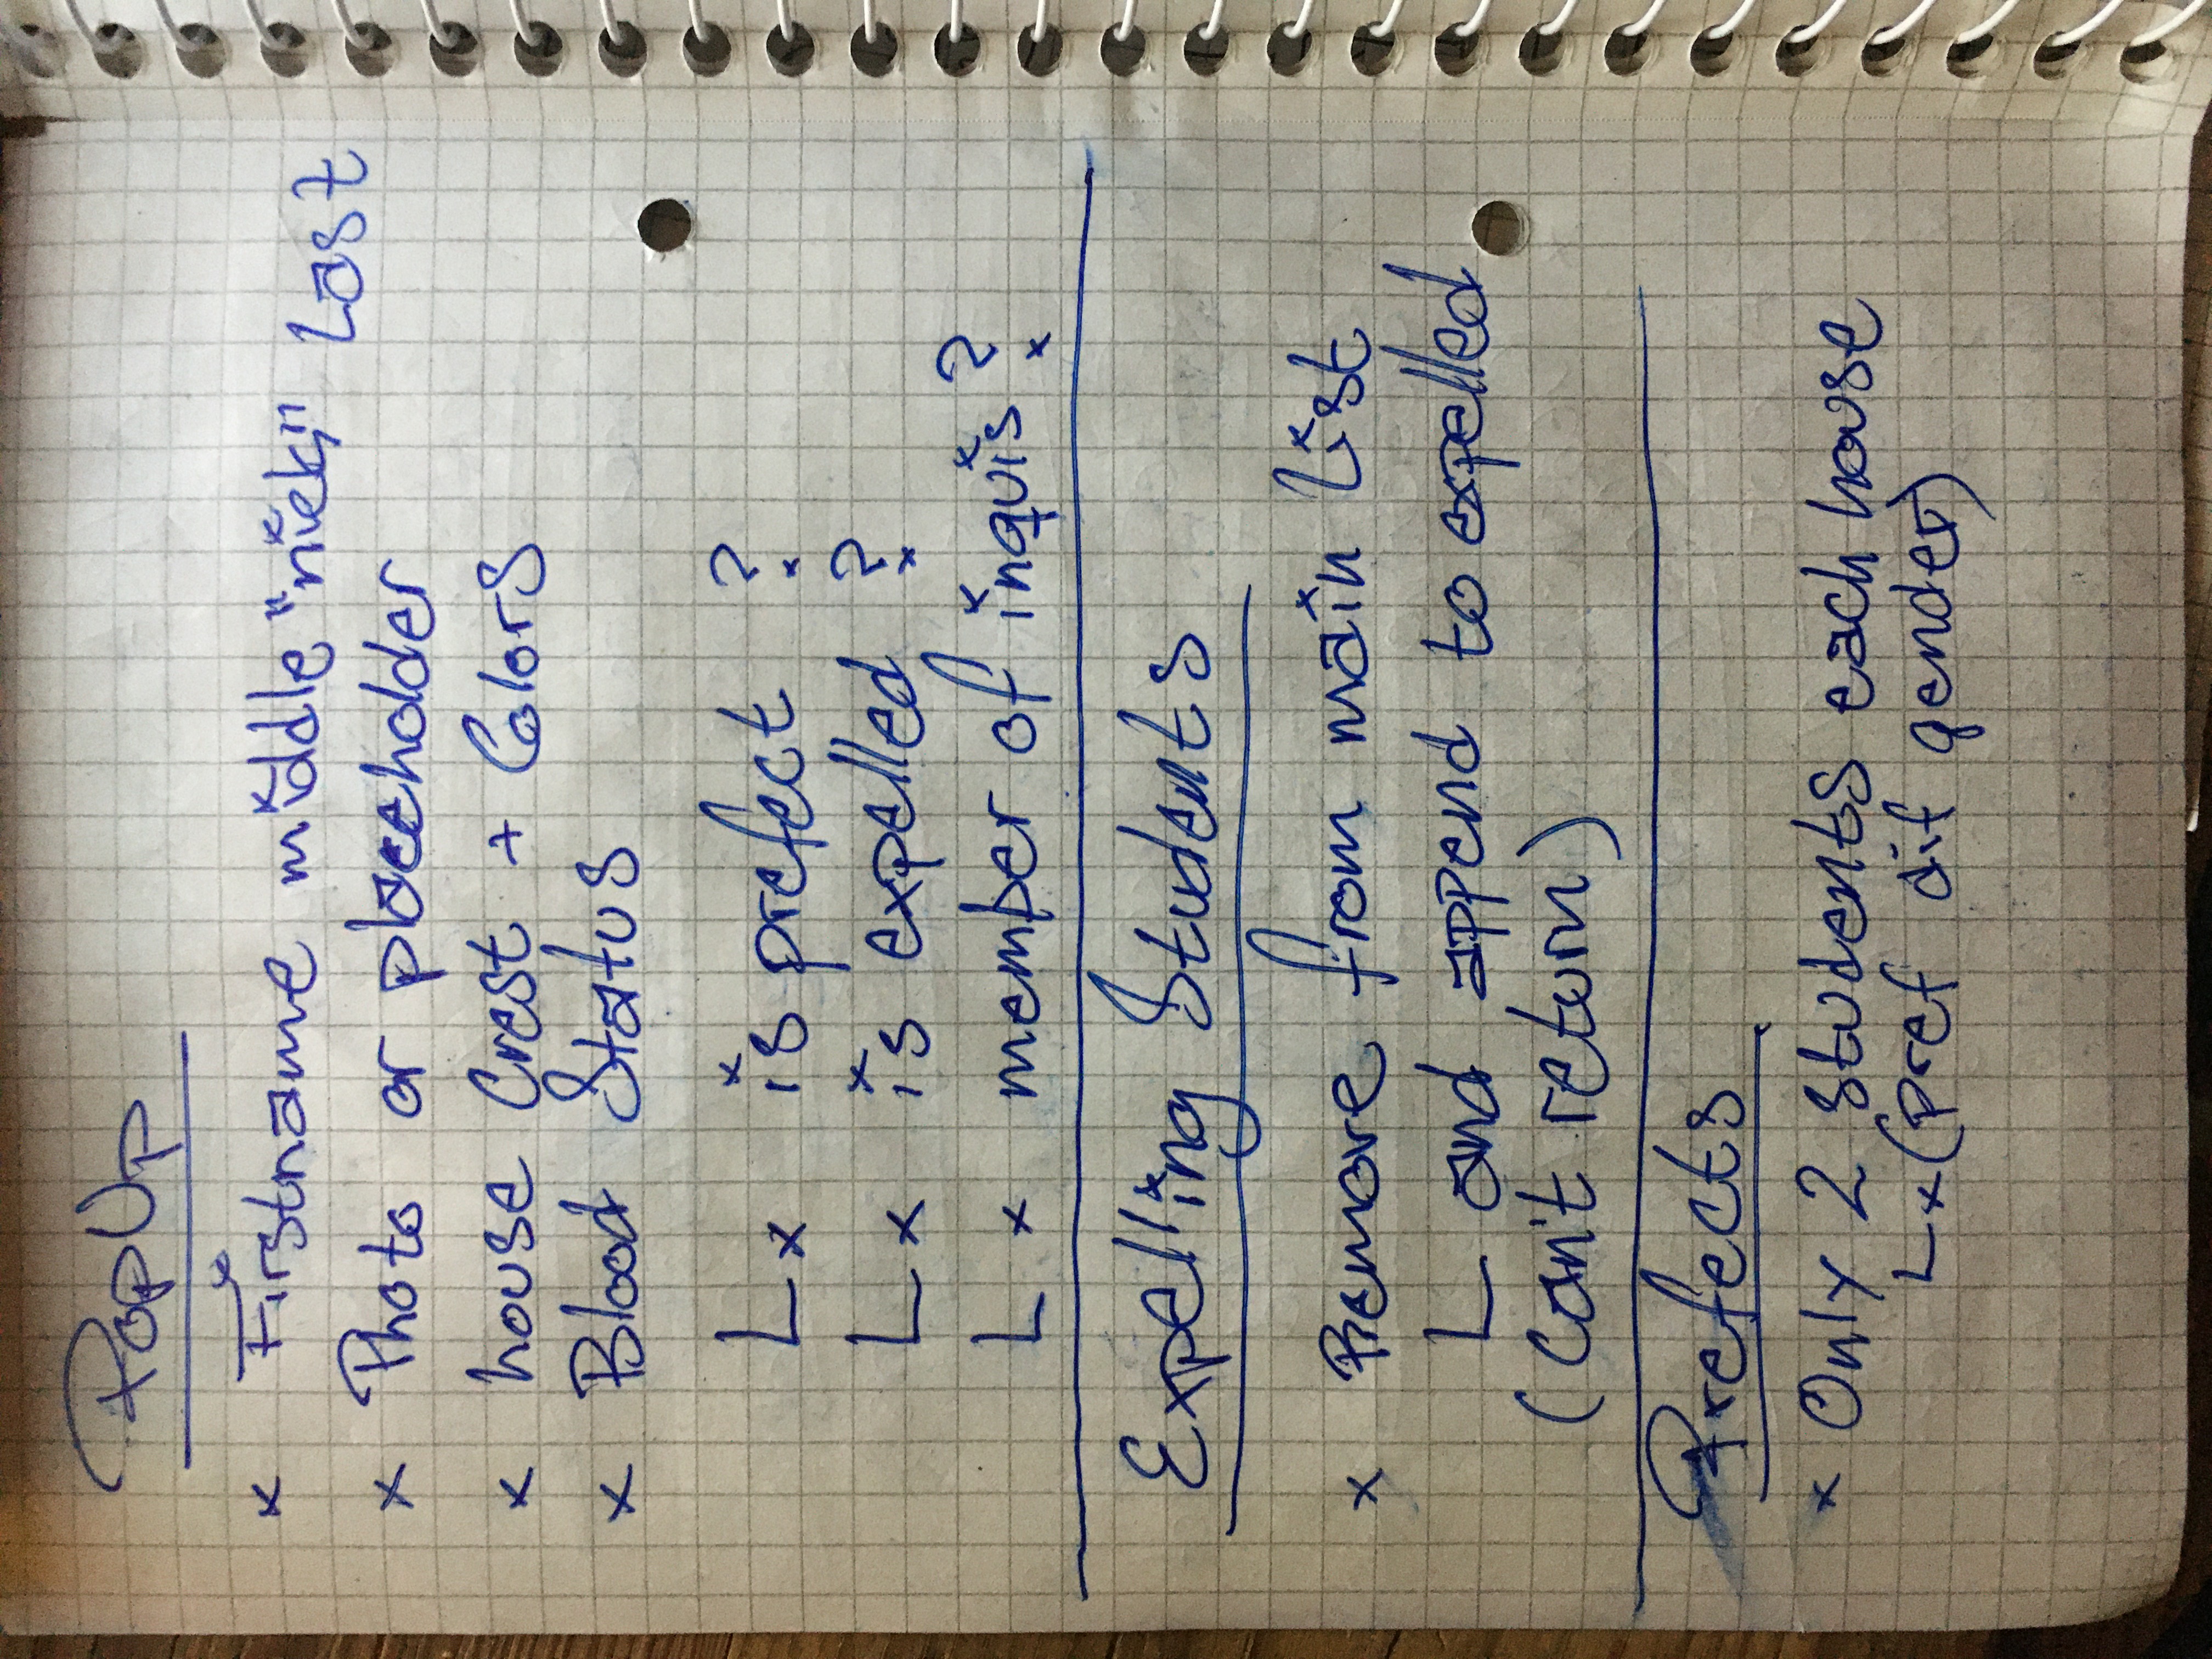 PopUp
x Firstname middle "nick" Last
x Photo or placeholder
x house Crest + Colors
x Blood Status
L x is prefect ?
L x is expelled ?
L x member of inquis ?
Expelling Students
x Remove from main list
L and append to expelled
(can't return)
Prefects
x Only 2 students each house
L x (pref dif gender)